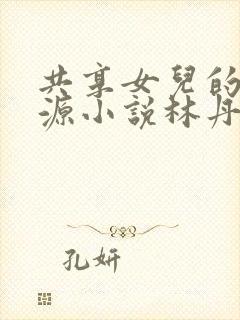 共享女兒的
源小說林丹
孔妍